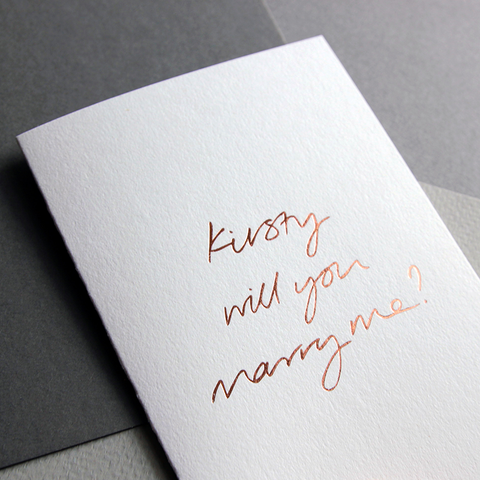 Kirsty
will you
marry me?